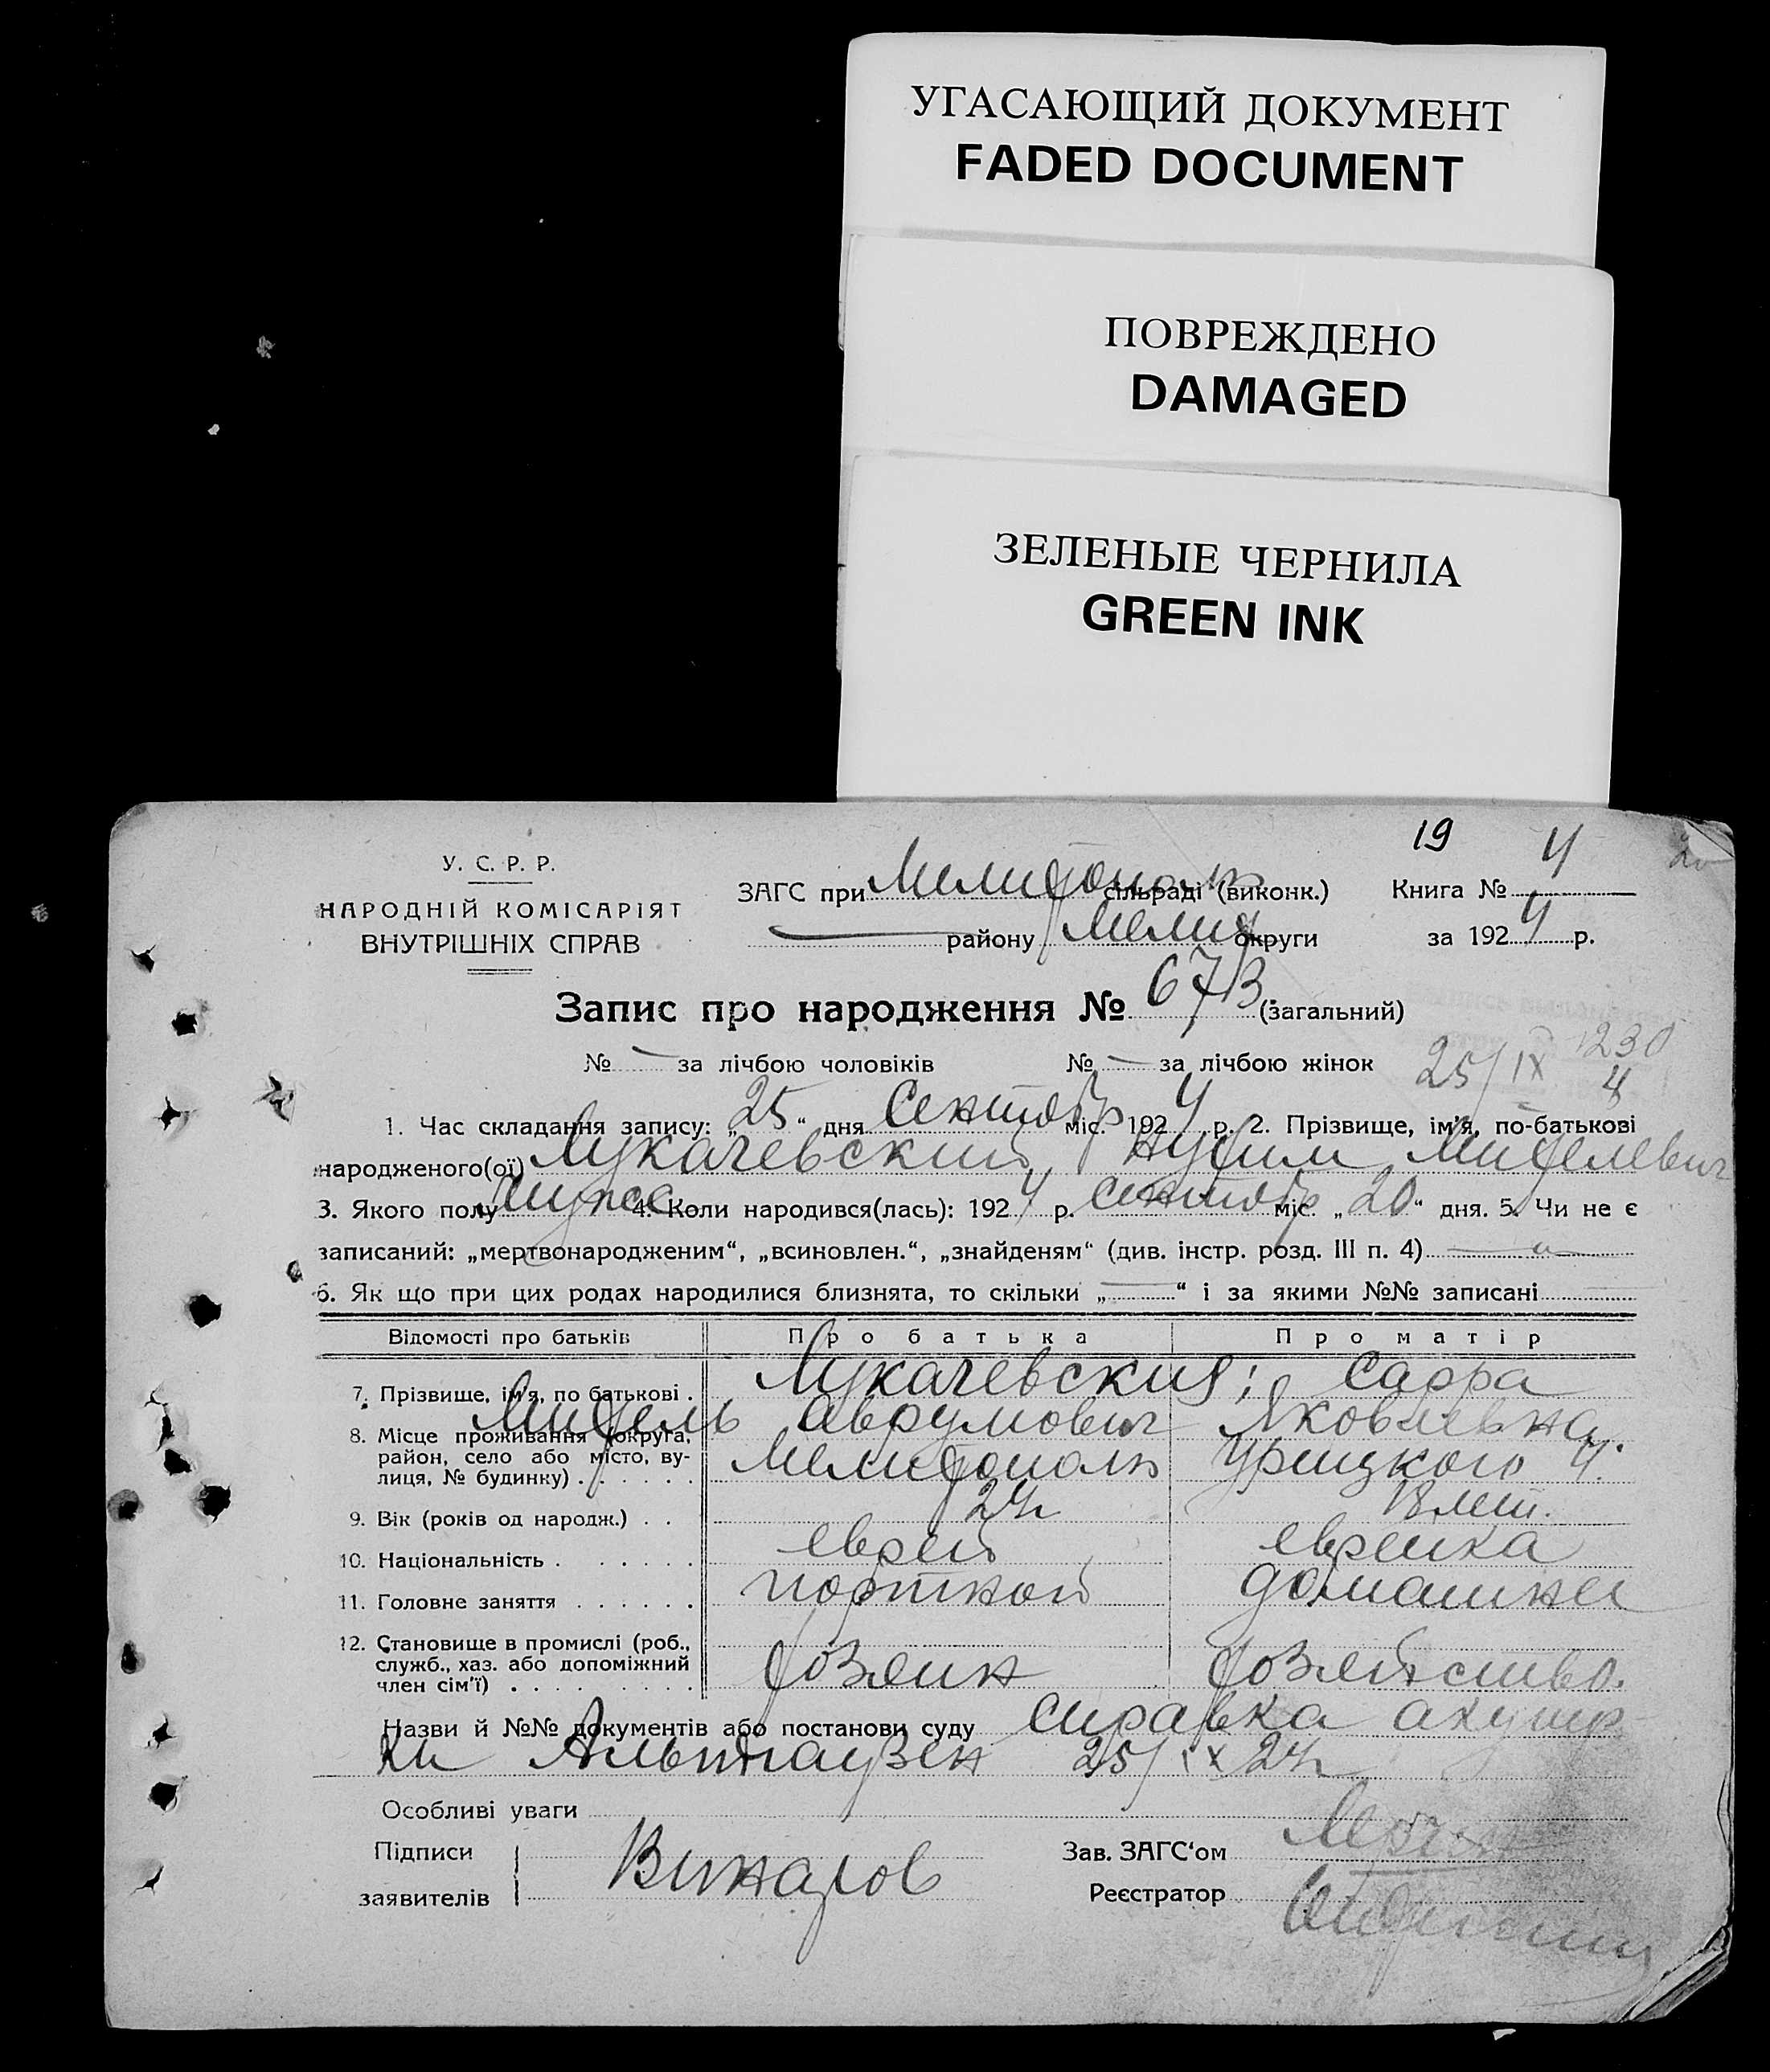 УГАСАЮЩИЙ ДОКУМЕНТ
FADED DOCUMENT
ПОВРЕЖДЕНО
DAMAGED
ЗЕЛЕНЫЕ ЧЕРНИЛА
GREEN INK
19
У. С. Р. Р.
НАРОДНІЙ КОМІСАРІЯТ
ВНУТРІШНІХ СПРАВ
ЗАГС при Мелитополь сільраді (виконк.) Книга № 4
району Мелит округи за 1924 р.
Запис про народження № 673 (загальний)
№ — за лічбою чоловіків № — за лічбою жінок 25/IX 4
1230
1. Час складання запису: „25“ дня Сентябр міс. 1924 р. 2. Прізвище, ім'я, по-батькові
народженого(ої) Лукачевский Нухим Михелевич
3. Якого полу мужс 4. Коли народився(лась): 1924 р. Сентябр міс. „20“ дня. 5. Чи не є
записаний: „мертвонародженим“, „всиновлен.“, „знайденям“ (див. інстр. розд. III п. 4) —
6. Як що при цих родах народилися близнята, то скільки „—“ і за якими №№ записані
Відомості про батьків Про батька Про матір
7. Прізвище, ім'я, по батькові . Лукачевский; Сарра
Михель Аврумович Яковлевна
8. Місце проживання (округа,
район, село або місто, ву-
лиця, № будинку) . . . . . . Мелитополь Урицкого 4.
9. Вік (років од народж.) . . 24 18 лет.
10. Національність . . . . . . еврей еврейка
11. Головне заняття . . . . . . портной домашнее
12. Становище в промислі (роб.,
служб., хаз. або допоміжний
член сім'ї) . . . . . . . . . хозяин хозяйство.
Назви й №№ документів або постанови суду справка акушер
ки Альтгаузен 25/IX 24
Особливі уваги
Підписи
заявителів Винаров
Зав. ЗАГС'ом
Реєстратор